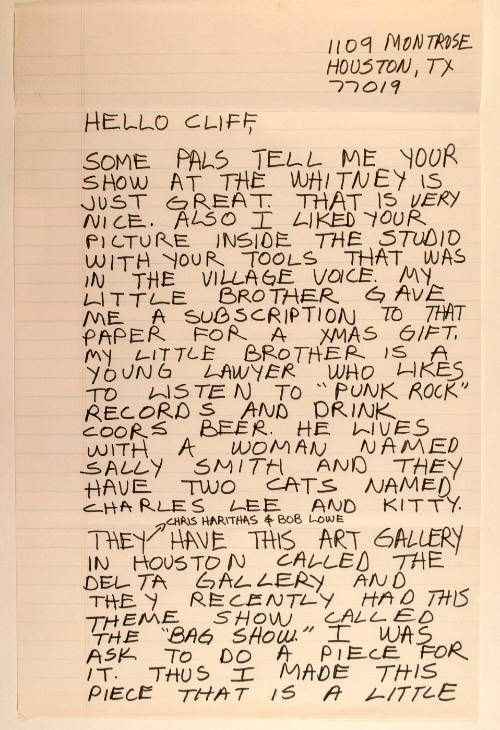 1109 MONTROSE
HOUSTON, TX
77019
HELLO CLIFF,
SOME PALS TELL ME YOUR
SHOW AT THE WHITNEY IS
JUST GREAT. THAT IS VERY
NICE. ALSO I LIKED YOUR
PICTURE INSIDE THE STUDIO
WITH YOUR TOOLS THAT WAS
IN THE VILLAGE VOICE. MY
LITTLE BROTHER GAVE
ME A SUBSCRIPTION TO THAT
PAPER FOR A XMAS GIFT.
MY LITTLE BROTHER IS A
YOUNG LAWYER WHO LIKES
TO LISTEN TO "PUNK ROCK"
RECORDS AND DRINK
COORS BEER. HE LIVES
WITH A WOMAN NAMED
SALLY SMITH AND THEY
HAVE TWO CATS NAMED
CHARLES LEE AND KITTY.
CHRIS HARITHAS & BOB LOWE
THEY HAVE THIS ART GALLERY
IN HOUSTON CALLED THE
DELTA GALLERY AND
THEY RECENTLY HAD THIS
THEME SHOW CALLED
THE "BAG SHOW." I WAS
ASK TO DO A PIECE FOR
IT. THUS I MADE THIS
PIECE THAT IS A LITTLE